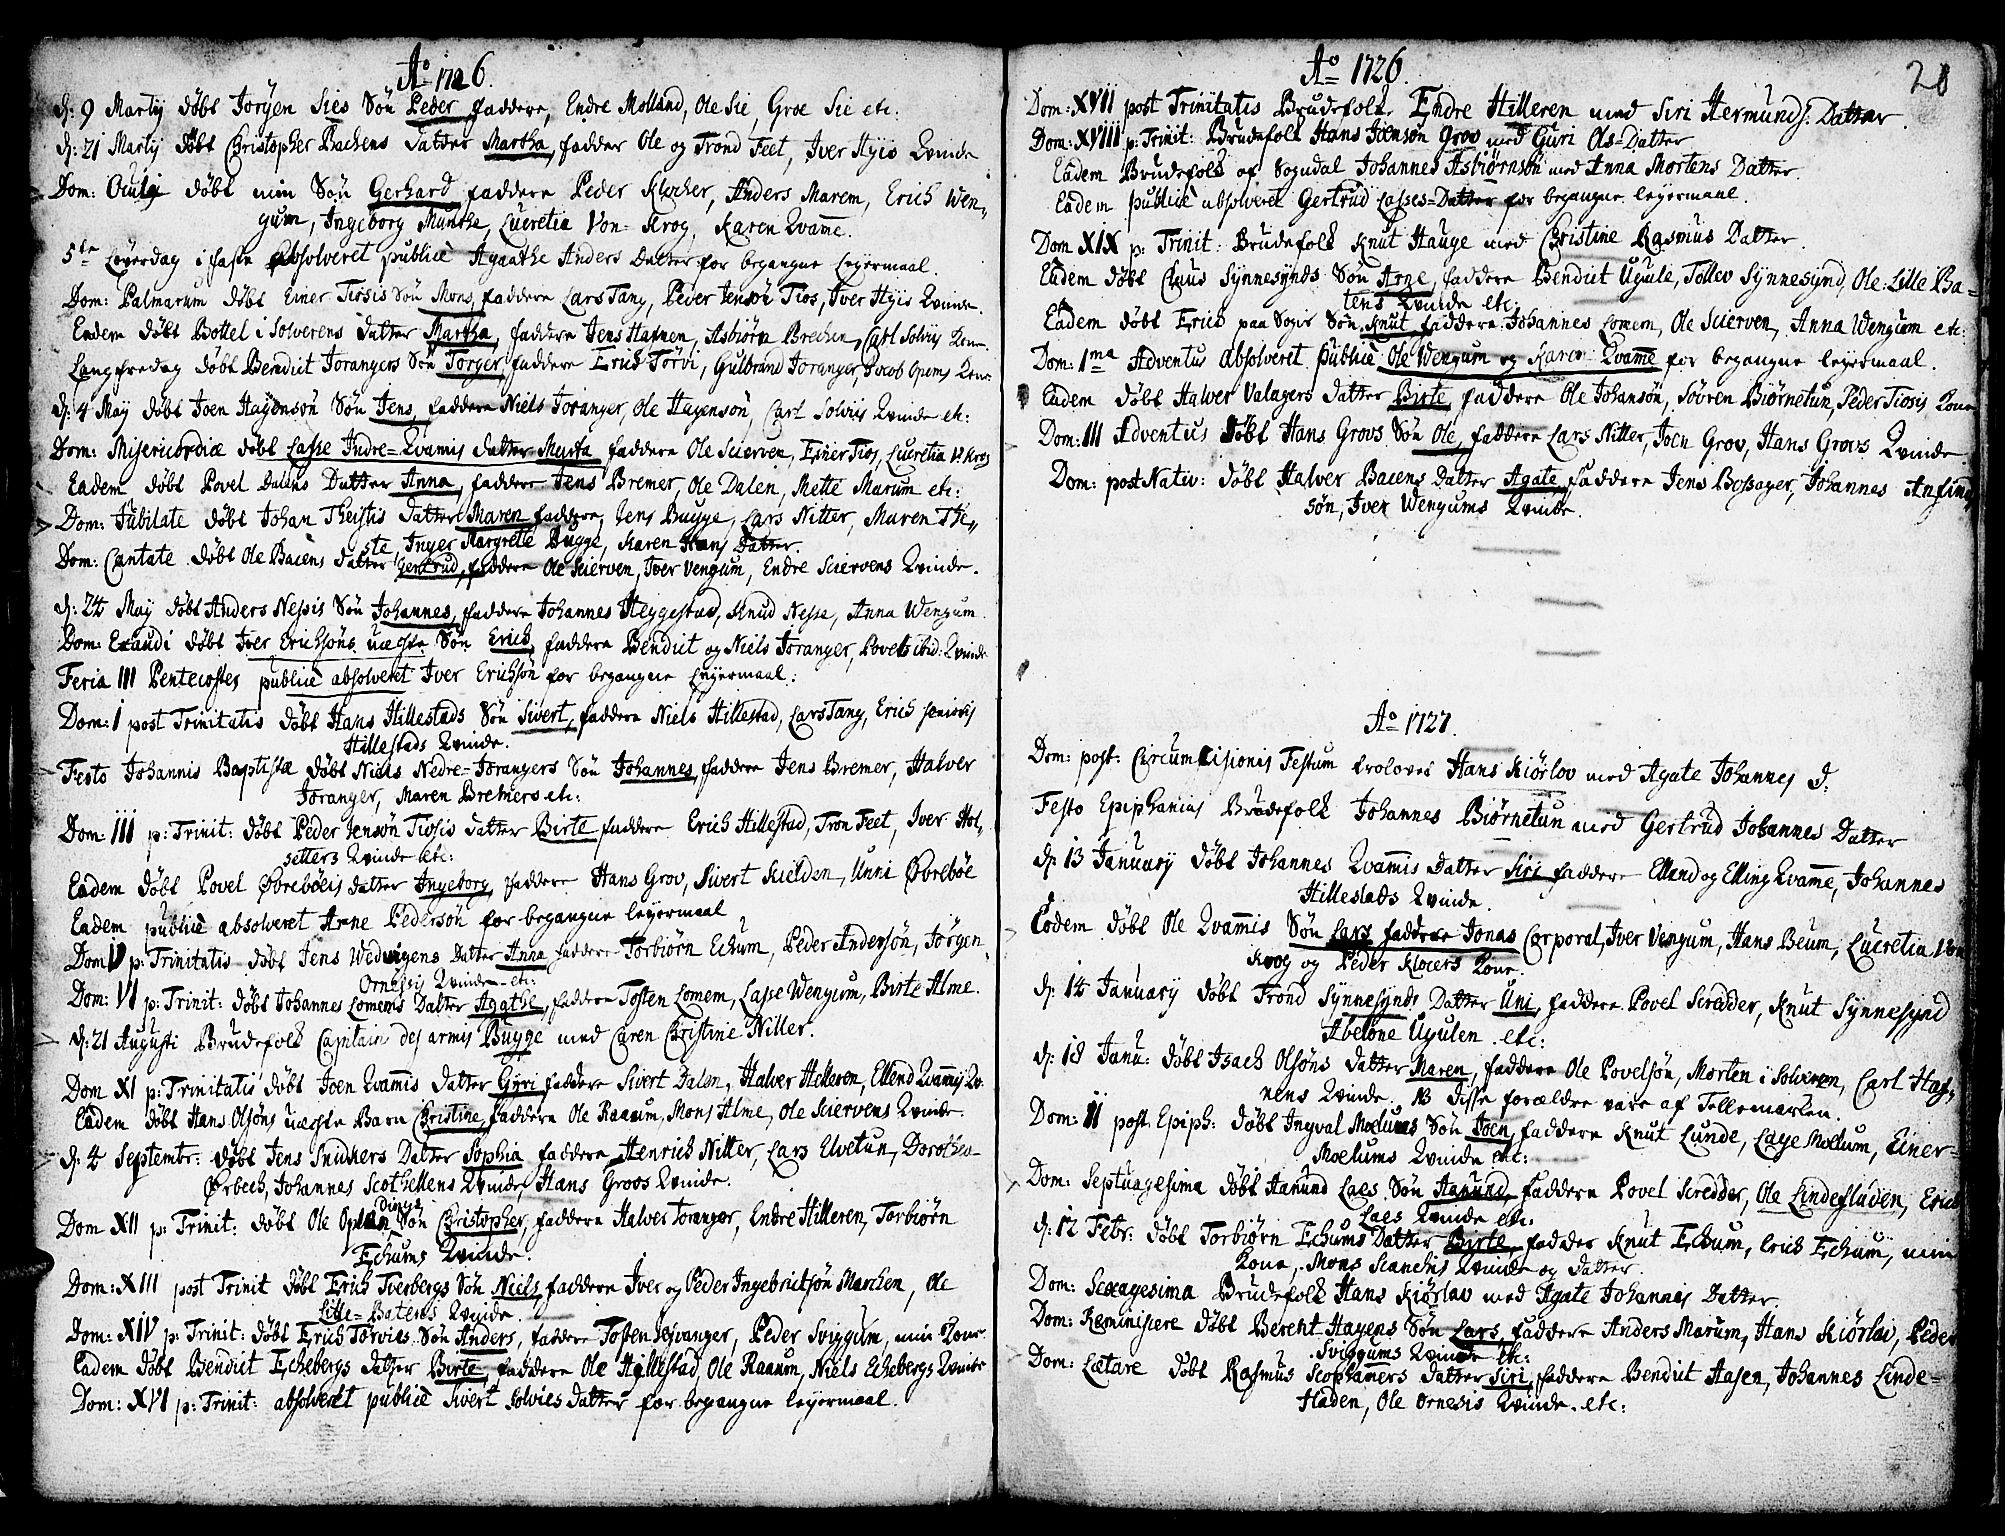 Ao 1726.
d: 9 Martij döbt Joryen Sies Sön Peder, faddere, Endre Molland, Ole Sie, Groe Sie etc:
d: 21 Martij döbt Christopher Bachens datter Martha, fadder Ole og Trond Feet, Iver Hyis Qvinde
Dom: Oculi döbt min Sön Gerhard faddere Peder Klocher, Anders Marem, Erich Wen,,
gum, Ingeborg Munthe, Lucretia Von Krog, Karen Qvam̄e.
5te Löverdag i faste absolveret publicè Agaathe Anders Datter for begangne Leyermaal.
Dom: Palmarum döbt Einer Tiosis Sön Mons, faddere Lars Tang, Peder Jensön Tios, Iver Hyis Qvinde.
Eadem döbt Bottel i Solverens datter Martha, faddere Jens Hafnen, Asbiörn Brechen, Carl Solvij Kone.
Langfredag döbt Bendict Jorangers Sön Torger, faddere Erich Törvi, Gulbrand Joranger, Jacob Opems Kone
d: 4 Maij döbt Joen Hagensön Sön Jens, faddere Niels Joranger, Ole Hagensön, Carl Solviis Qvinde etc:
Dom: Misericordiæ döbt Lasse Indre=Qvamis datter Marta faddere Ole Scierven, Einer Tios, Lucretia V: Krog
Eadem döbt Povel Dalens Datter Anna, faddere Jens Bremer, Ole Dalen, Mette Marum etc:
Dom: Jubilate döbt Johan Theistis datter Maren faddere, Jens Bugge, Lars Nitter, Maren The,,
ste, Inger Margrete Bugge, Karen Hans Datter.
Dom: Cantate döbt Ole Bacens datter Gertrud, faddere Ole Scierven, Iver Vengum, Endre Sciervens Qvinde.
d: 24 Maij döbt Anders Nessis Sön Johannes, faddere Johannes Heggestad, Knud Nesse, Anna Wengum.
Dom: Exaudi döbt Iver Erichsöns uægte Sön Erich, faddere Bendict og Niels Joranger, Povels ibid: Qvinde
Feria III Pentecostes publicè absolveret Iver Erichsön for begangne Leyermaal.
Dom: I post Trinitatis döbt Hans Hillestads Sön Sivert, faddere Niels Hillestad, Lars Tang, Erich senioris
Hillestads Qvinde.
Festo Johannis Baptistæ döbt Niels Nedre=Jorangers Sön Johannes, faddere Jens Bremer, Halver
Joranger, Maren Bremers etc:
Dom: III p: Trinit: döbt Peder Jensön Tiosis datter Birte faddere Erich Hillestad, Tron Feet, Iver Hol,
setters Qvinde etc:
Eadem döbt Povel Öbreböeis datter Ingeborg, faddere Hans Grov, Sivert Scielden, Unni Öbreböe
Eadem publicè absolveret Arne Pedersön for begangne leyermaal
Dom: V p: Trinitatis döbt Jens Wedvigens Datter Anna faddere Torbiörn Echum, Peder Andersön, Jörgen
Ornesis Qvinde etc:
Dom: VI p: Trinit: döbt Johannes Lomems Datter Agathe, faddere Tosten Lomem, Lasse Wengum, Birte Alme.
d: 21 Augusti Brudefolk Capitain des armis Bugge med Caren Christine Nitter.
Dom XI p: Trinitatis döbt Joen Qvam̄is datter Gyri faddere Sivert Dalen, Halver Hilleren, Ellend Qvam̄is Qv.
Eadem döbt Hans Olsöns uægte Barn Christine, faddere Ole Raaum, Mons Alme, Ole Sciervens Qvinde.
d: 4 Septembr: döbt Jens Snidkers Datter Sophia faddere Henrich Nitter, Lars Elvetun, Dorothea
Örbech, Johannes Scothellens Qvinde, Hans Groos Qvinde.
Dom XII p: Trinit: döbt Ole Oplan Sön Christopher, faddere Halver Joranger, Endre Hilleren, Torbiörn
Echums Qvinde.
Dom: XIII post Trinit döbt Erich Tverbergs Sön Niels, faddere Iver og Peder Ingebrictsön Marchen, Ole
Litle=Batens Qvinde.
Dom: XIV p: Trinit: döbt Erich Torvies Sön Anders, faddere Tosten Jesvanger, Peder Sviggum, min Kone.
Eadem döbt Bendict Echebergs datter Birte, faddere Ole Hillestad, Ole Raaum, Niels Echebergs Qvinde
Dom: XVI p: Trinit: absolveret publicè Sivert Solvies datter for begangne leyermaal.
Ao 1726.
28
Dom: XVII post Trinitatis Brudefolk Endre Hilleren med Siri Hermunds: Datter.
Dom: XVIII p: Trinit: Brudefolk Hans Joensön Grov med Guri Ols=Datter
Eadem Brudefolk af Sogndal Johannes Asbiörnsön med Anna Mortens Datter.
Eadem publicè absolveret Gertrud Lasses=Datter for begangne leyermaal.
Dom XIX p: Trinit: Brudefolk Knut Hauge med Christine Rasmus Datter.
Eadem döbt Claus Synnesynds Sön Arne, faddere Bendict Ugule, Tollev Synnesynd, Ole Lille Ba=
tens Qvinde etc:
Eadem döbt Erich paa Sogis Sön Knut faddere Johannes Lomem, Ole Scierven, Anna Wengum etc:
Dom: 1ma Adventus absolveret publicè Ole Wengum og Karen Qvam̄e for begangne leyermaal.
Eadem döbt Halver Valagers datter Birte, faddere Ole Johansön, Sövren Biörnetun, Peder Tiosis Kone
Dom: III Adventus döbt Hans Grovs Sön Ole, faddere Lars Nitter, Joen Grov, Hans Grovs Qvinde
Dom: post Nativ: döbt Halver Bacens datter Agate, faddere Jens Bossager, Johannes Anfind,
sön, Iver Wengums Qvinde.
Ao 1727.
Dom: post: Circumcisionis Festum trolovet Hans Kiörlov med Agate Johannes D:
Festo Epiphanias Brudefolk Johannes Biörnetun med Gertrud Johannes Datter
d: 13 Januarij döbt Johannes Qvam̄is datter Siri faddere Ellend og Elling Qvam̄e, Johannes
Hillestads Qvinde.
Eodem döbt Ole Qvam̄is Sön Lars faddere Jonas Corporal, Iver Vengum, Hans Beum, Lucretia Von
Krog og Peder Klocers Kone.
d: 14 Januarij döbt Trond Synnesynds Datter Uni, faddere Povel Scredder, Knut Synnesynd
Abelone Ugulen etc:
d: 18 Janu: döbt Isach Olsöns datter Maren, faddere Ole Povelsön, Morten i Solveren, Carl Haf,
nens Qvinde. NB disse forældre vare af Tellemarken.
Dom: II post Epiph: döbt Ingval Moelums Sön Joen, faddere Knut Lunde, Lage Moelum, Einer=
Moelums Qvinde etc:
Dom: Septuagesima döbt Hamund Laes Sön Hamund, faddere Povel Scredder, Ole Lindefladen, Erich
Laes Qvinde etc.
d: 12 Febr: döbt Torbiörn Echums Datter Birte, fadder Knut Echum, Erich Echum, min
Kone, Mons Scanches Qvinde og datter.
Dom: Sexagesima Brudefolk Hans Kiörlav med Agate Johannis Datter.
Dom: Reminiscere döbt Berent Hagens Sön Lars, faddere Anders Marum, Hans Kiörlav, Peder
Sviggums Qvinde etc:
Dom: Lætare döbt Rasmus Scophammers datter Siri, faddere Bendict Hasen, Johannes Linde=
fladen, Ole Ornesis Qvinde. etc: